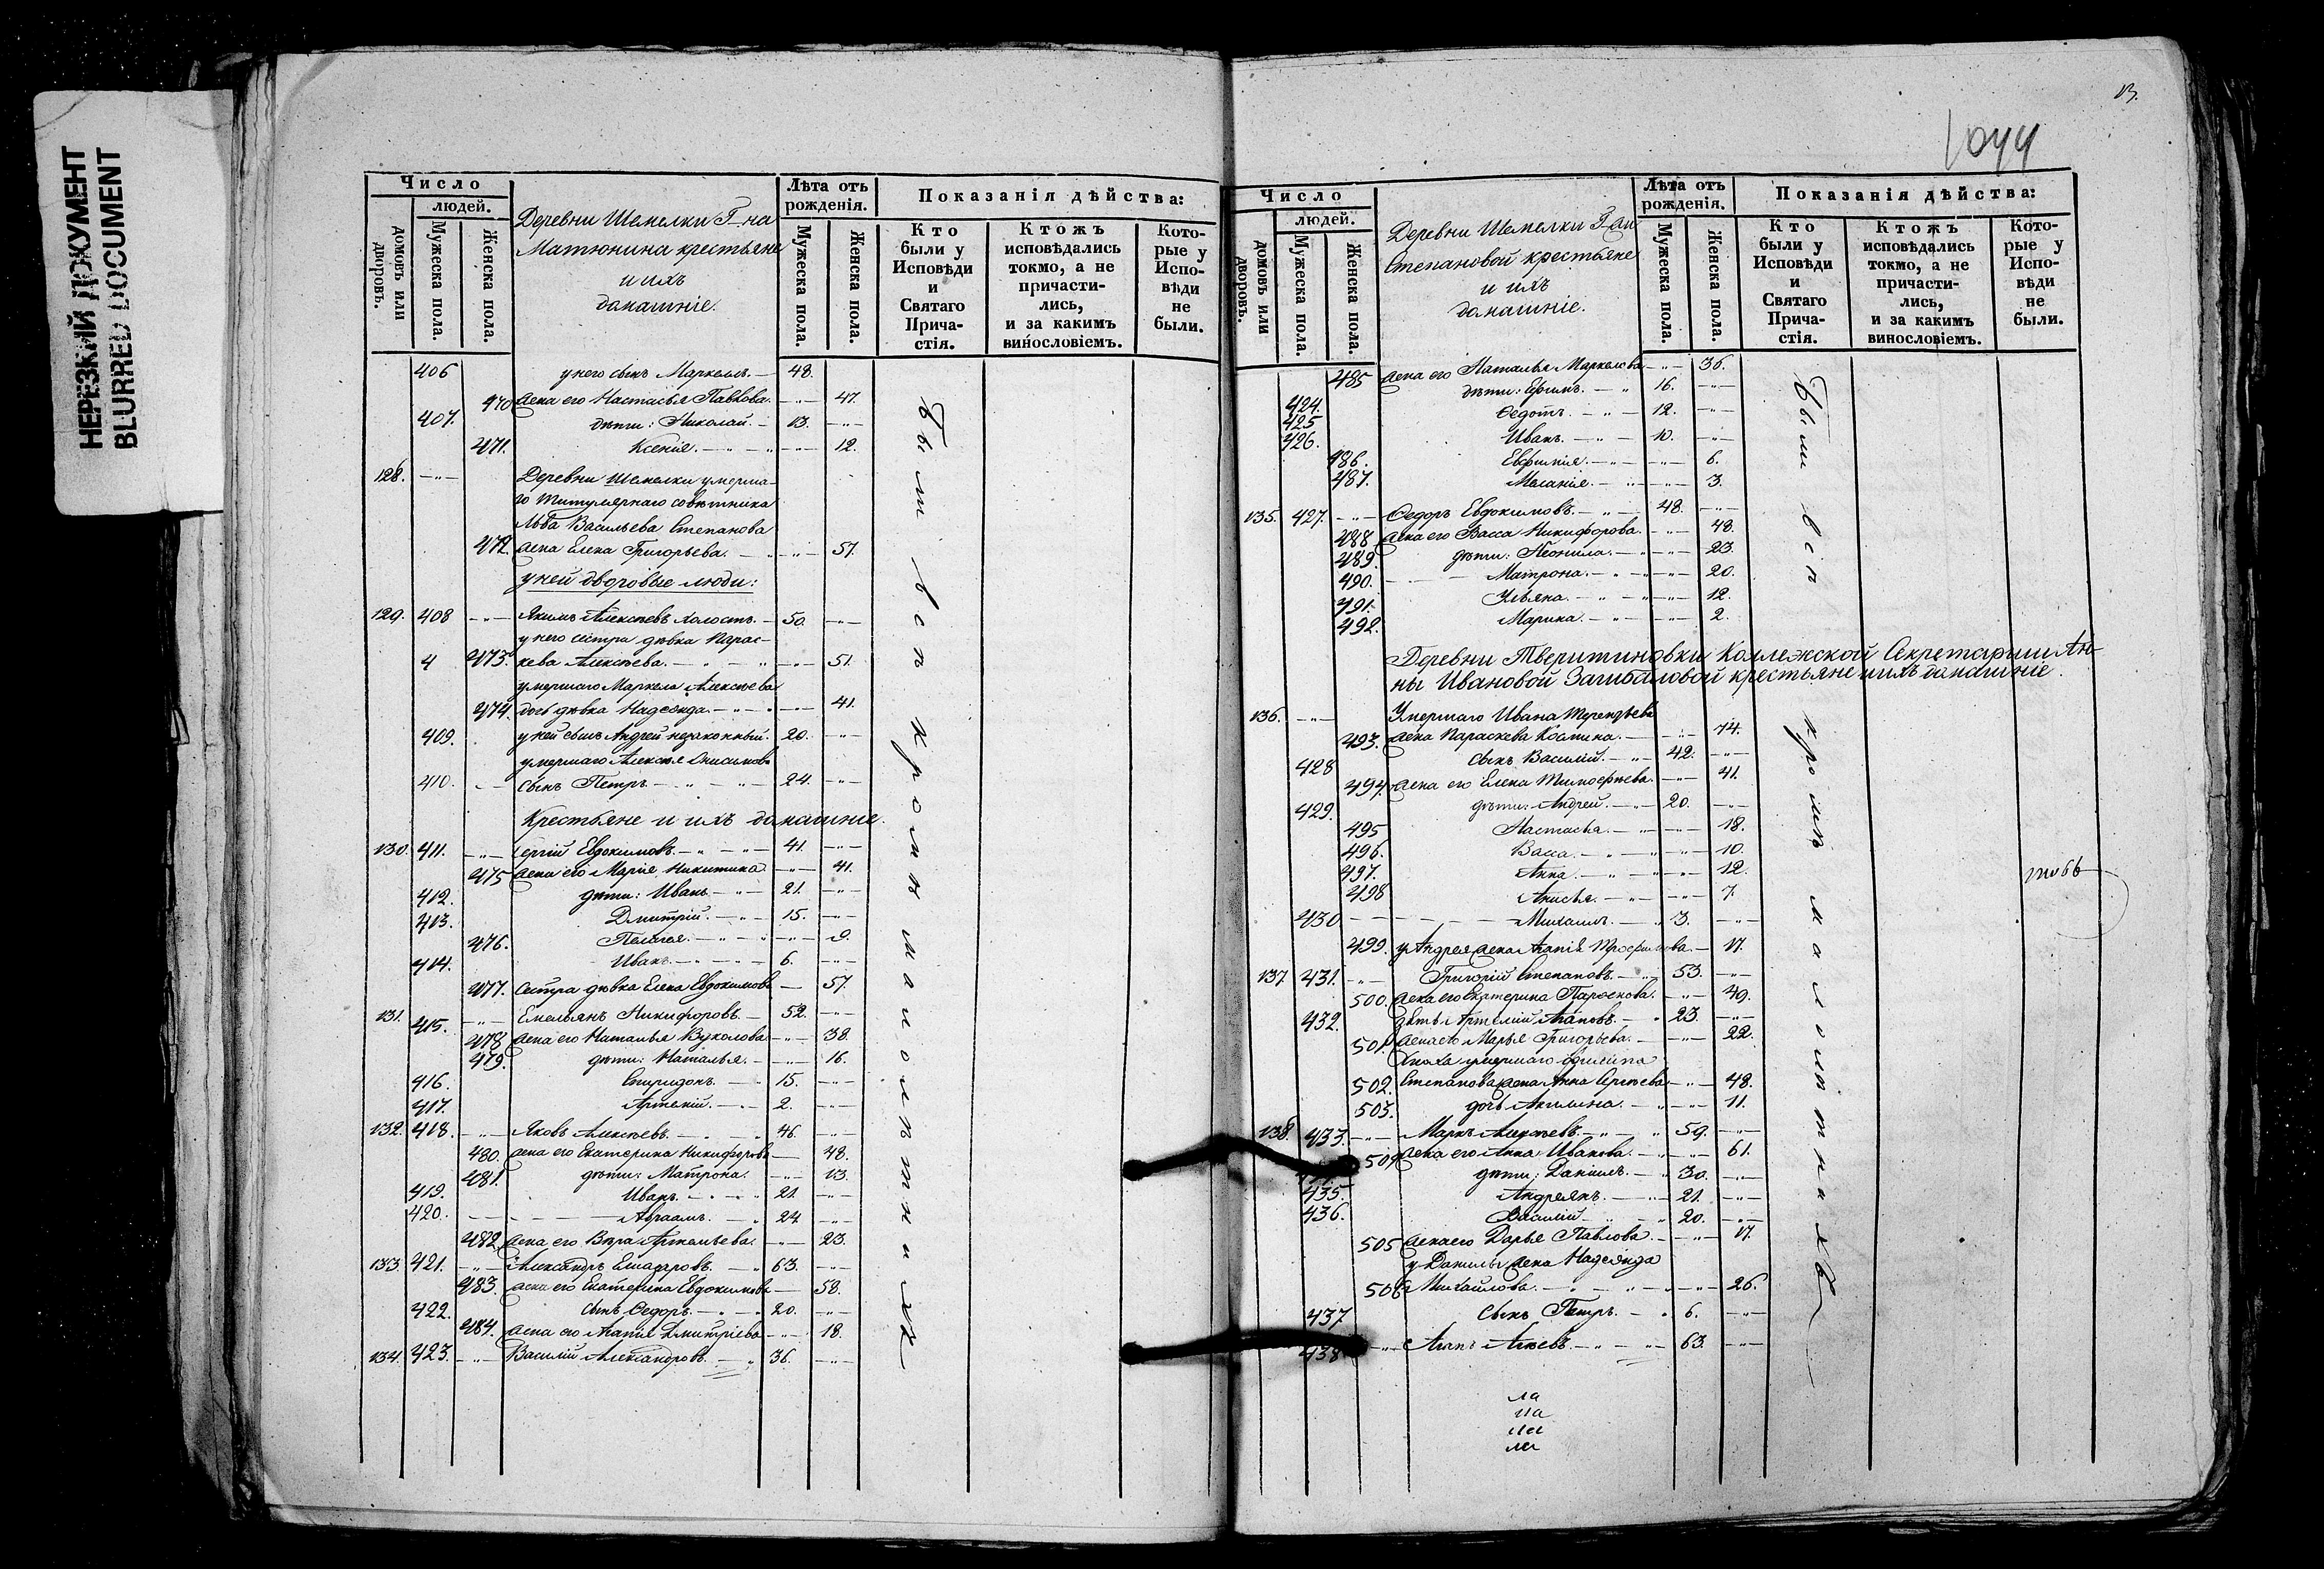 НЕРЕЗКИЙ ДОКУМЕНТ
BLURRED DOCUMENT
Число
людей.
домовъ или дворовъ.
Мужеска пола.
Женска пола.
Деревни Шемелки Г-на
Матюнина крестьяне
и ихъ
домашніе.
Лѣта отъ рожденія.
Мужеска пола.
Женска пола.
Показанія дѣйства:
Кто были у Исповѣди и Святаго Причастія.
Ктожъ исповѣдались токмо, а не причастились, и за какимъ винословіемъ.
Которые у Исповѣди не были.
406 у него сынъ Маркеллъ. 48.
470 жена его Настасья Павлова. 47.
407. дѣти: Николай. 13.
471. Ксенія. 12.
128. Деревни Шемелки умерша-
го Титулярнаго совѣтника
Льва Васильева Степанова
472. жена Елена Григорьева. 57.
у ней дворовые люди:
129. 408 Якимъ Алексѣевъ холостъ. 50.
у него сестра дѣвка Парас-
473. кева Алексѣева. 51.
умершаго Маркела Алексѣева
474. дочь дѣвка Надежда. 41.
409. у ней сынъ Андрей незаконный. 20.
умершаго Алексѣя Онисимова
410. сынъ Петръ 24.
Крестьяне и ихъ домашніе.
130. 411. Сергій Евдокимовъ. 41.
475 жена его Марія Никитина. 41.
412. дѣти: Иванъ 21.
413. Дмитрій. 15.
476. Пелагея. 9.
414. Иванъ. 6.
477. Сестра дѣвка Елена Евдокимова 57.
131. 415. Емельянъ Никифоровъ. 52.
478 жена его Наталья Вуколова 38.
479. дѣти: Наталья. 16.
416. Спиридонъ. 15.
417. Артемій. 2.
132. 418. Яковъ Алексѣевъ. 46.
480. жена его Екатерина Никифорова 48.
481. дѣти: Матрона. 13.
419. Иванъ. 21.
420. Авраамъ. 24
482. жена его Вѣра Артемьева. 23.
133. 421. Александръ 63.
483. жена его Екатерина Евдокимова 58.
422. сынъ Ѳедоръ. 20.
484. жена его Агапія Дмитріева 18.
134. 423. Василій Александровъ. 36.
Были всѣ кромѣ малолѣтнихъ
13.
1044
Число
людей.
домовъ или дворовъ.
Мужеска пола.
Женска пола.
Деревни Шемелки Г-жи
Степановой крестьяне
и ихъ
домашніе.
Лѣта отъ рожденія.
Мужеска пола.
Женска пола.
Показанія дѣйства:
Кто были у Исповѣди и Святаго Причастія.
Ктожъ исповѣдались токмо, а не причастились, и за какимъ винословіемъ.
Которые у Исповѣди не были.
485 жена его Наталья Маркелова 36.
424. дѣти: Ефимъ. 16.
425 Ѳедотъ. 12.
426. Иванъ. 10.
486. Евфимія. 6.
487. Меланія. 3.
135. 427. Ѳедоръ Евдокимовъ. 48.
488 жена его Васса Никифорова. 48.
489. дѣти: Неонила. 23.
490. Матрона. 20.
491. Ульяна. 12.
492. Марина. 2.
Деревни Тверитиновки Коллежской Секретарши Ан-
ны Ивановой Загибаловой крестьяне и ихъ домашніе.
136. Умершаго Ивана Терентьева
493. жена Параскева Космина. 74.
428 сынъ Василій. 42.
494. жена его Елена Тимофѣева. 41.
429. дѣти: Андрей. 20.
495 Настасья. 18.
496. Васса. 10.
497. Анна. 12.
498 Анисья. 7.
430 Михаилъ. 3.
499. у Андрея жена Агапія Трофимова. 17.
137. 431. Григорій Степановъ. 53.
500. жена его Екатерина Парфенова. 49.
432. зять Артемій Агаповъ. 23.
501. жена его Марья Григорьева. 22.
Сноха умершаго
502. Степанова жена Анна Сергѣева 48.
503. дочь Акилина. 11.
138. 433. Маркъ Алексѣевъ. 59.
504 жена его Анна Иванова. 61.
дѣти: Даніилъ. 30.
435. Андреянъ. 21.
436. Василій 20.
505 жена его Дарья Павлова. 17.
у Данилы жена Надежда
506 Михайлова. 26.
437 сынъ Петръ. 6.
438 63.
Были всѣ кромѣ малолѣтнихъ